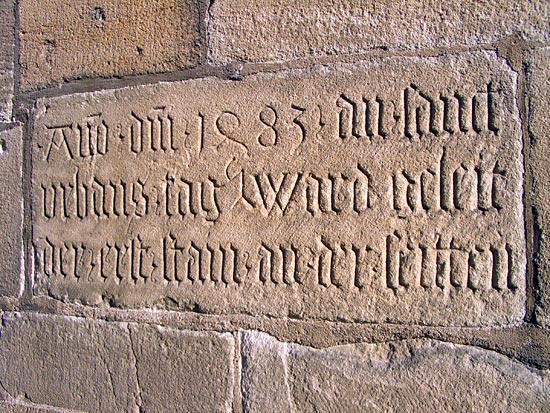 Año · dm̄ · 1483 · an · sant
vrbans · tag · ward geleit
der · erst · stain · an · der · seitten